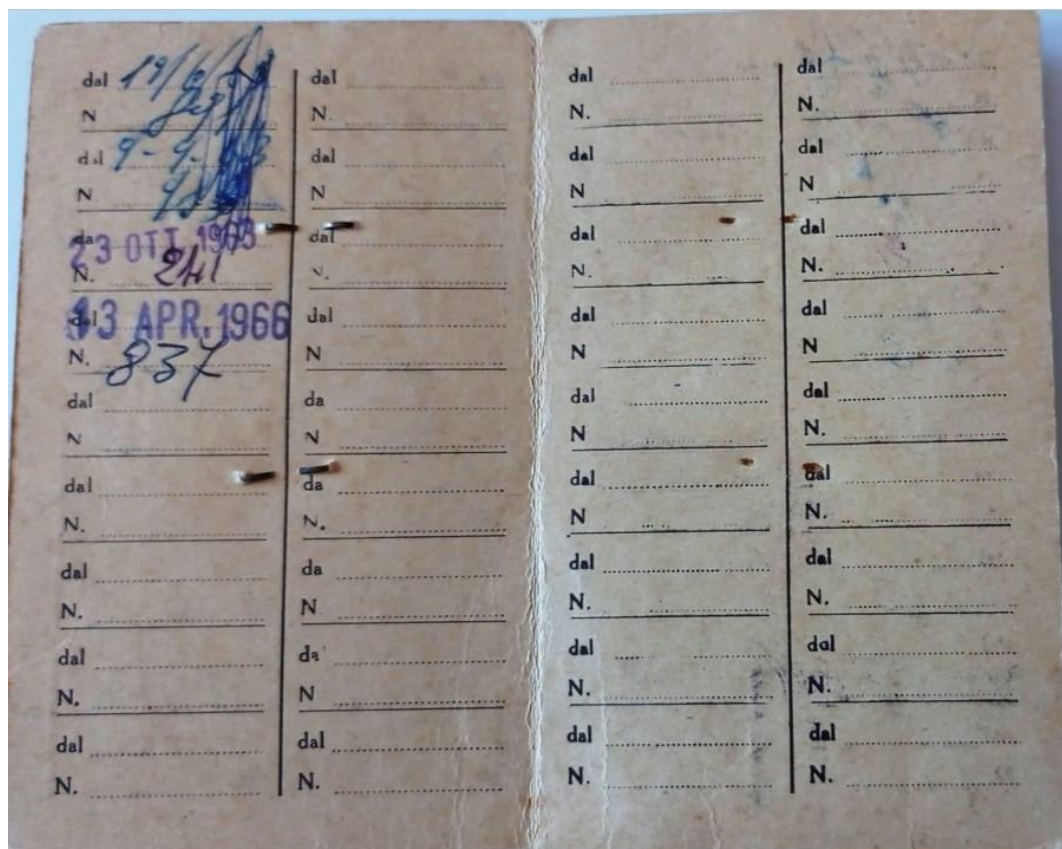 dal
N
dal 9-9-
N
23 OTT. 1963
N. 241
13 APR. 1966
N. 837
dal
N
dal
N.
dal
N.
dal
N.
dal
N.
dal
N.
dal
N
dal
N.
dal
N
da
N
da
N.
da
N
da
N
dal
N.
dal
N.
dal
N
dal
N.
dal
N
dal
N
dal
N
dal
N.
dal
N.
dal
N.
dal
N.
dal
N
dal
N.
dal
N
dal
N.
dal
N.
dal
N.
dal
N.
dal
N.